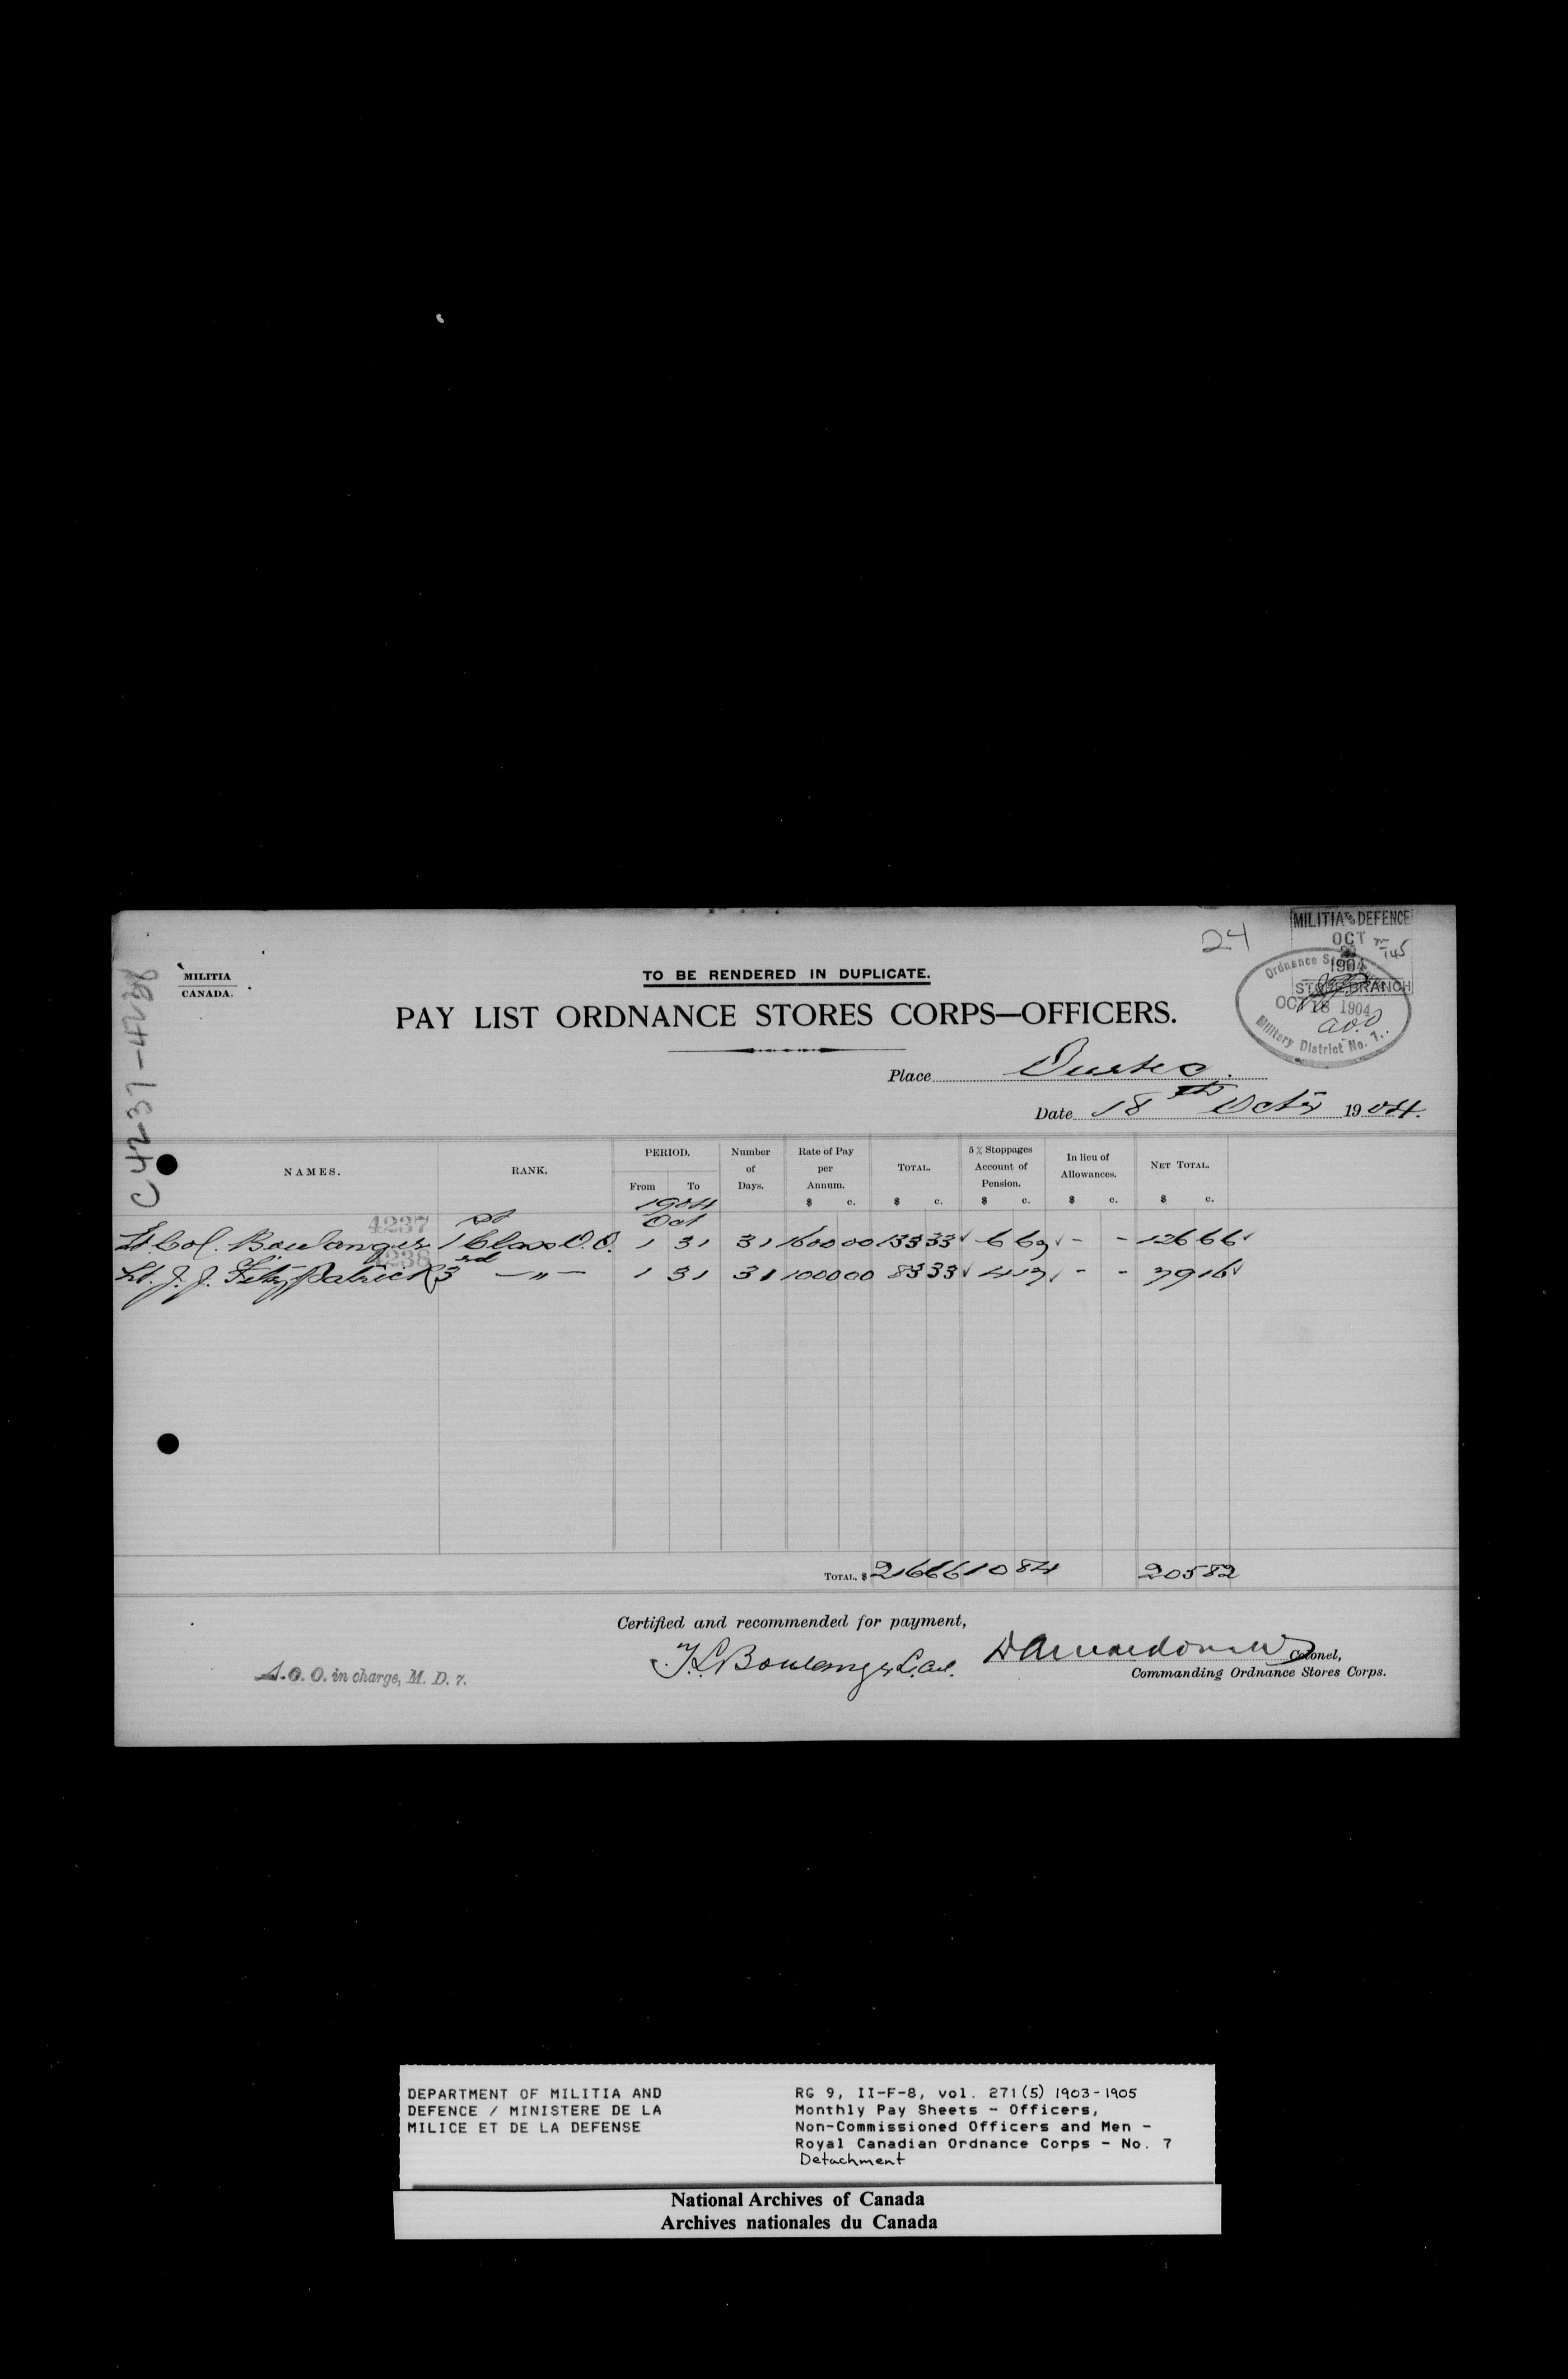 C 4237-4238
MILITIA
CANADA.
24
MILITIA & DEFENCE
OCT
1904
STORE BRANCH
Ordnance
OCT 18 1904
Military District No. 7.
TO BE RENDERED IN DUPLICATE.
PAY LIST ORDNANCE STORES CORPS—OFFICERS.
Place Quebec.
Date 18th Octr 1904.
NAMES. RANK. PERIOD. From To Number of Days. Rate of Pay per Annum. $ c. TOTAL. $ c. 5% Stoppages Account of Pension. $ c. In lieu of Allowances. $ c. NET TOTAL. $ c.
1904
4237 Oct
Lt. Col. Boulanger 1st Class O.O. 1 31 31 1600 00 133 33 6 67 - - 126 66
4238
Lt. J. J. Fitzpatrick 3rd — " — 1 31 31 1000 00 83 33 4 17 - - 79 16
TOTAL, $ 216 66 10 84 205 82
Certified and recommended for payment,
S.O.O. in charge, M. D. 7.
Boulanger L. Col.
D A Macdonald Colonel,
Commanding Ordnance Stores Corps.
DEPARTMENT OF MILITIA AND
DEFENCE / MINISTERE DE LA
MILICE ET DE LA DEFENSE
RG 9, II-F-8, vol. 271(5) 1903-1905
Monthly Pay Sheets - Officers,
Non-Commissioned Officers and Men -
Royal Canadian Ordnance Corps - No. 7
Detachment
National Archives of Canada
Archives nationales du Canada